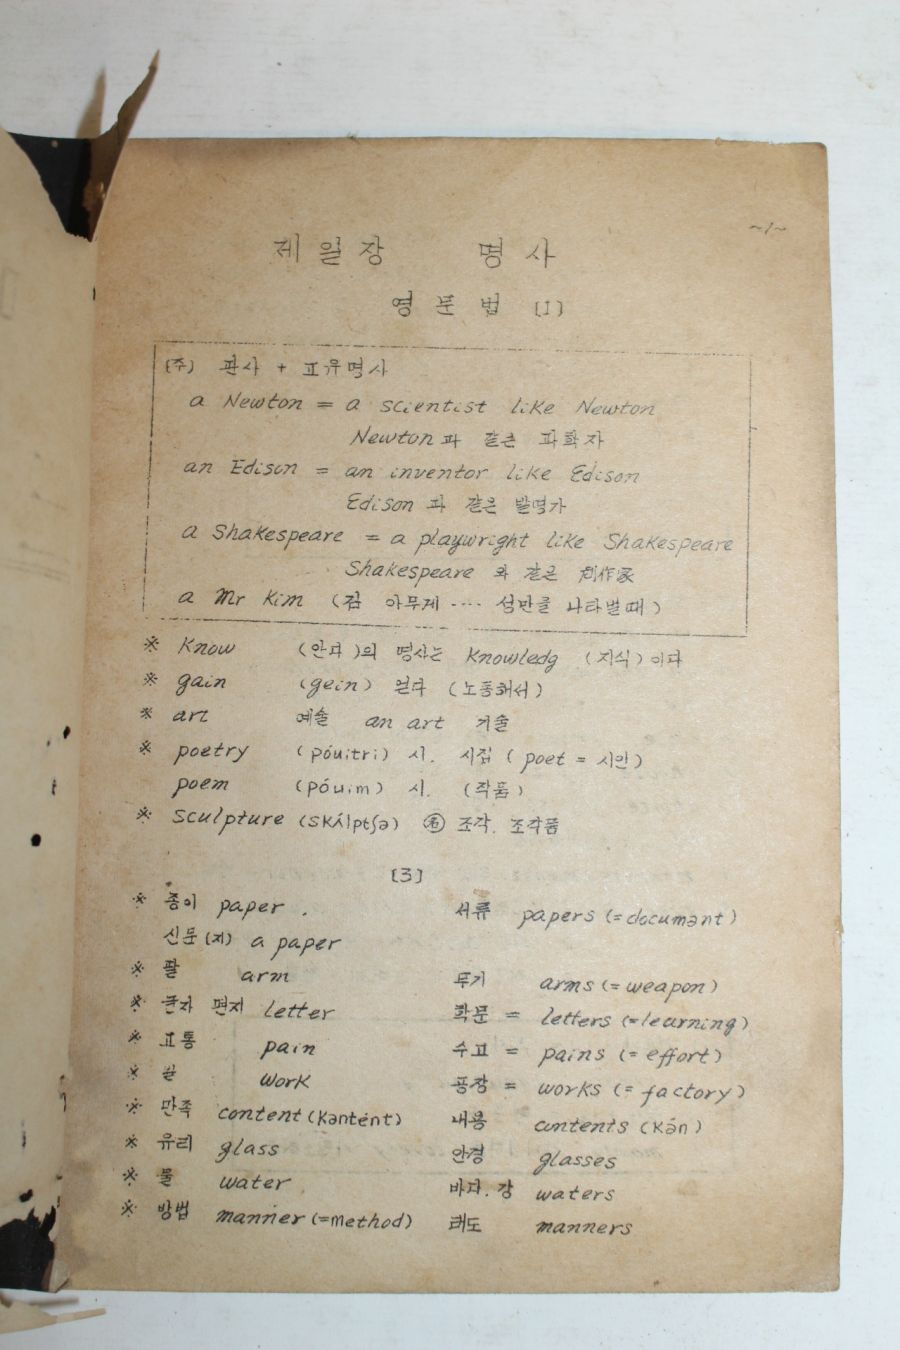 ~1~
제 일 장 명 사
영 문 법 [I]
(주) 관사 + 고유명사
a Newton = a scientist like Newton
Newton과 같은 과학자
an Edison = an inventor like Edison
Edison과 같은 발명가
a Shakespeare = a playwright like Shakespeare
Shakespeare 와 같은 劇作家
a Mr Kim (김 아무게 ....  나타낼때)
※ Know (안다)의 명사는 Knowledg (지식) 이다
※ gain (gein) 얻다 (노동해서)
※ art 예술 an art 기술
※ poetry (póuitri) 시. 시집 ( poet = 시인)
poem (póuim) 시. (작품)
※ sculpture (skʌ́lptʃə) ㊔ 조각. 조각품
[3]
※ 종이 paper . 서류 papers (=documənt)
신문(지) a paper
※ 팔 arm 무기 arms (=weapon)
※ 글자 편지 letter 학문 = letters (=learning)
※ 고통 pain 수고 = pains (= effort)
※ 일 work 공장 = works (= factory)
※ 만족 content (kəntént) 내용 contents (kán)
※ 유리 glass 안경 glasses
※ 물 water 바다. 강 waters
※ 방법 manner (=method) 태도 manners